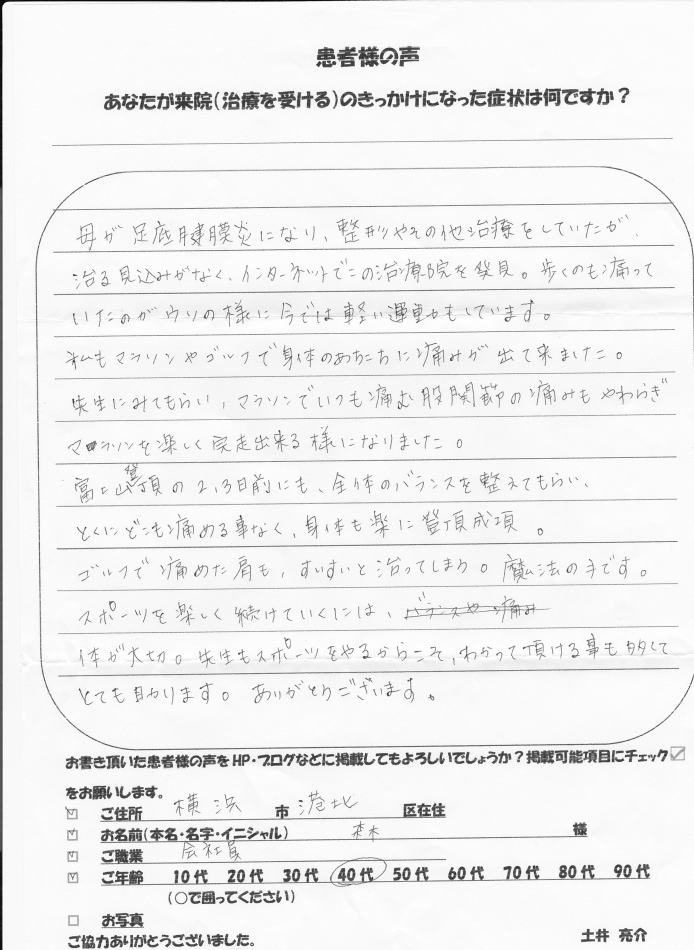 患者様の声
あなたが来院(治療を受ける)のきっかけになった症状は何ですか?
母が足底腱膜炎になり、整形やその他治療をしていたが、
治る見込みがなく、インターネットでこの治療院を発見。歩くのも痛って
いたのがウソの様に今では軽い運動もしています。
私もマラソンやゴルフで身体のあちこちに痛みが出て来ました。
先生にみてもらい、マラソンでいつも痛む股関節の痛みもやわらぎ
マラソンを楽しく完走出来る様になりました。
富士山登頂の2,3日前にも、全体のバランスを整えてもらい、
とくにどこも痛める事なく、身体も楽に登頂成功。
ゴルフで痛めた肩も、すいすいと治ってしまう。魔法の手です。
スポーツを楽しく続けていくには、バランスや痛み
体が大切。先生もスポーツをやるからこそ、わかって頂ける事も多くて
とても助かります。ありがとうございます。
お書き頂いた患者様の声をHP・ブログなどに掲載してもよろしいでしょうか?掲載可能項目にチェック☑
をお願いします。
☑ ご住所 横浜 市 港北 区在住
☑ お名前(本名・名字・イニシャル) 様
☑ ご職業 会社員
☑ ご年齢 10代 20代 30代 40代 50代 60代 70代 80代 90代
(○で囲ってください)
□ お写真
ご協力ありがとうございました。 土井 亮介